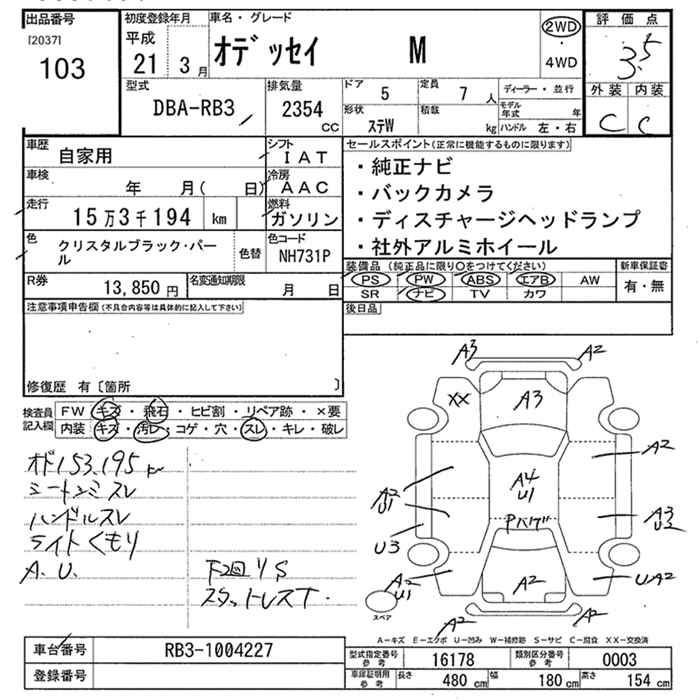 出品番号
[2037]
103
初度登録年月
平成
21 3月
車名・グレード
オデッセイ M
2WD
・
4WD
評価点
3.5
外装 内装
C C
型式
DBA-RB3
排気量
2354
CC
ドア
5
定員
7人
形状
ステW
積載
kg
ディーラー・並行
モデル年式 年
ハンドル 左・右
車歴
自家用
シフト
IAT
車検
年 月( 日)
冷房
AAC
走行
15万3千194 km
燃料
ガソリン
色
クリスタルブラック・パール
色替
色コード
NH731P
R券
13,850円
名変通知期限
月 日
セールスポイント(正常に機能するものに限ります)
・純正ナビ
・バックカメラ
・ディスチャージヘッドランプ
・社外アルミホイール
装備品(純正品に限り○をつけてください)
新車保証書
PS PW ABS エアB AW
SR ナビ TV カワ
有・無
注意事項申告欄(不具合内容等は具体的に記入して下さい)
後日品
修復歴 有〔箇所 〕
検査員記入欄
FW キズ・飛石・ヒビ割・リペア跡・×要
内装 キズ・汚レ・コゲ・穴・スレ・キレ・破レ
オド153,195km
シートシミスレ
ハンドルスレ
ライトくもり
A.U.
下回りS
スタットレスT.
A3 A2
XX A3
A2
A4
U1
A2
U1
Pハゲ
A3
U2
U3
A2
U1
A2
UA2
A2
A2
スペア
A-キズ E-エクボ U-凹み W-補修跡 S-サビ C-腐食 XX-交換済
車台番号
RB3-1004227
登録番号
型式指定番号
参考
16178
類別区分番号
参考
0003
車庫証明用
参考
長さ
480 cm
幅
180 cm
高さ
154 cm